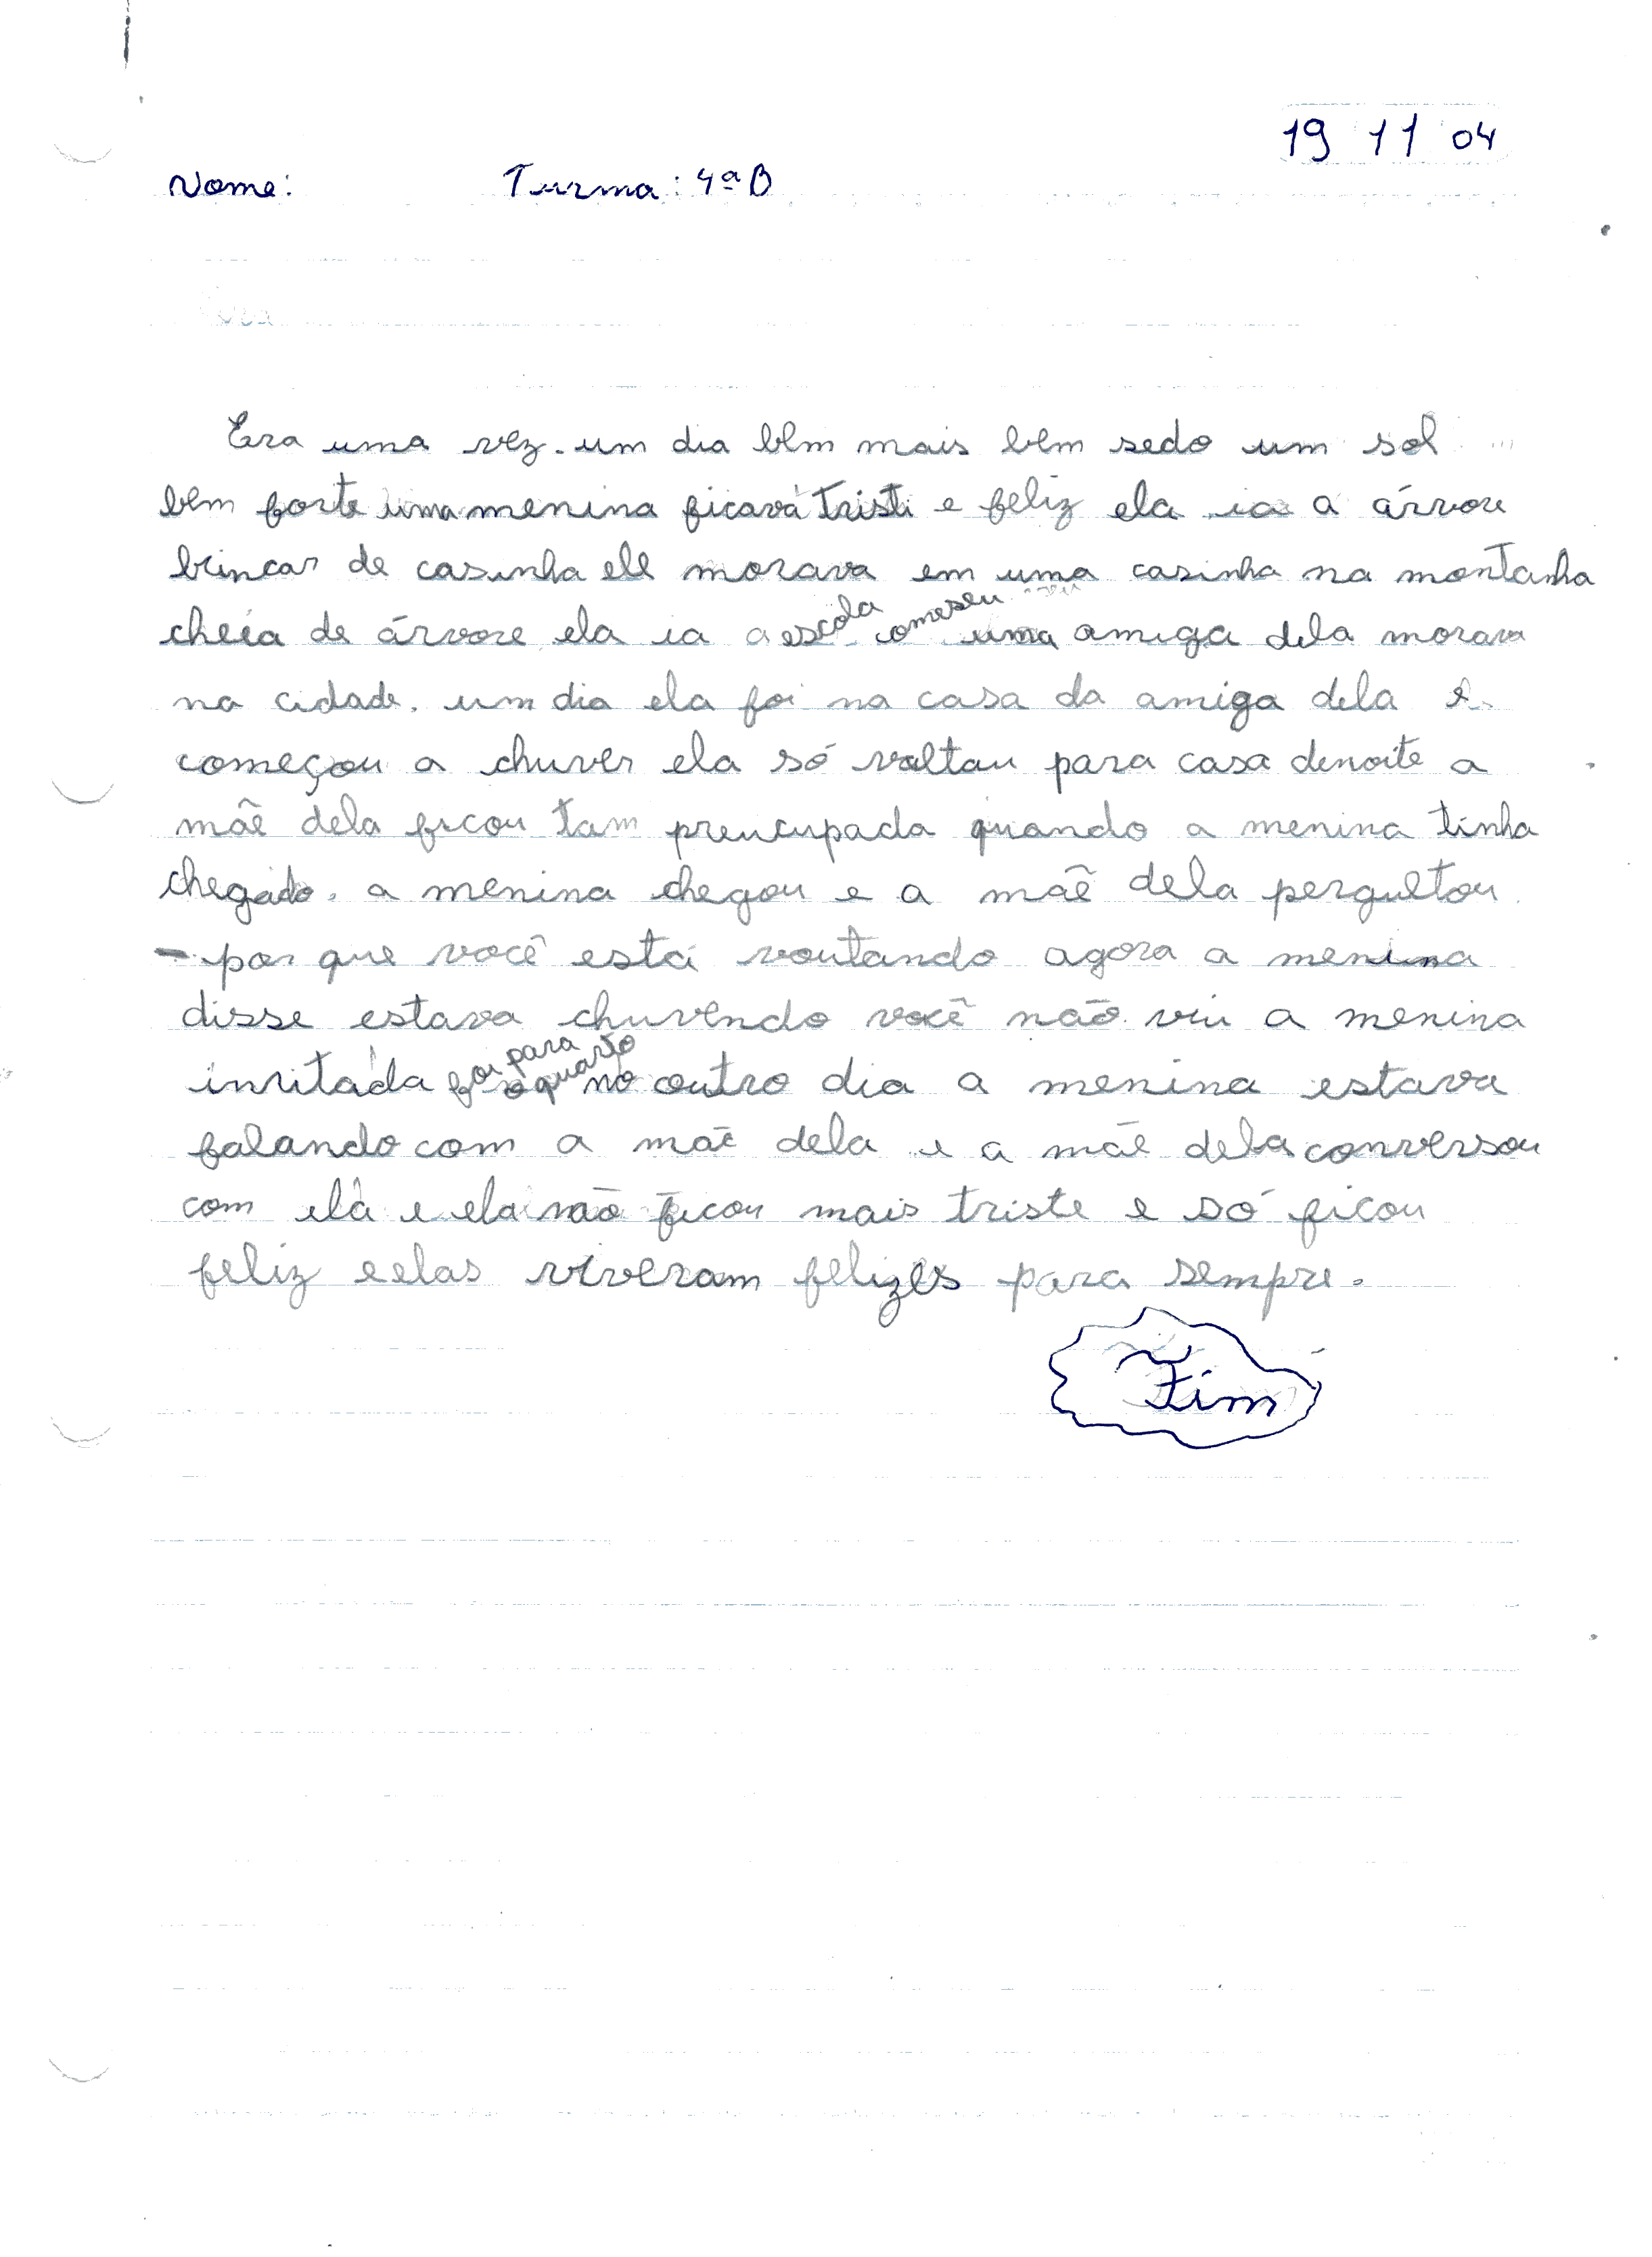 19 11 04
Nome: Turma: 4ª B
Era uma vez. um dia bem mais bem sedo um sol
bem forte uma menina ficava triste e feliz ela ia a árvore
brincar de casinha ele morava em uma casinha na montanha
cheia de árvore ela ia a escola comeseu uma amiga dela morava
na cidade. um dia ela foi na casa da amiga dela e
começou a chuver ela só voltau para casa denoite a
mãe dela ficou tam preucupada quando a menina tinha
chegado. a menina chegou e a mãe dela pergultou.
- por que você está voutando agora a menina
disse estava chuvendo você não viu a menina
inritada foi para o quarto no outro dia a menina estava
falando com a mãe dela e a mãe dela conversou
com ela e ela não ficou mais triste e só ficou
feliz e elas viveram felizes para sempre.
Fim